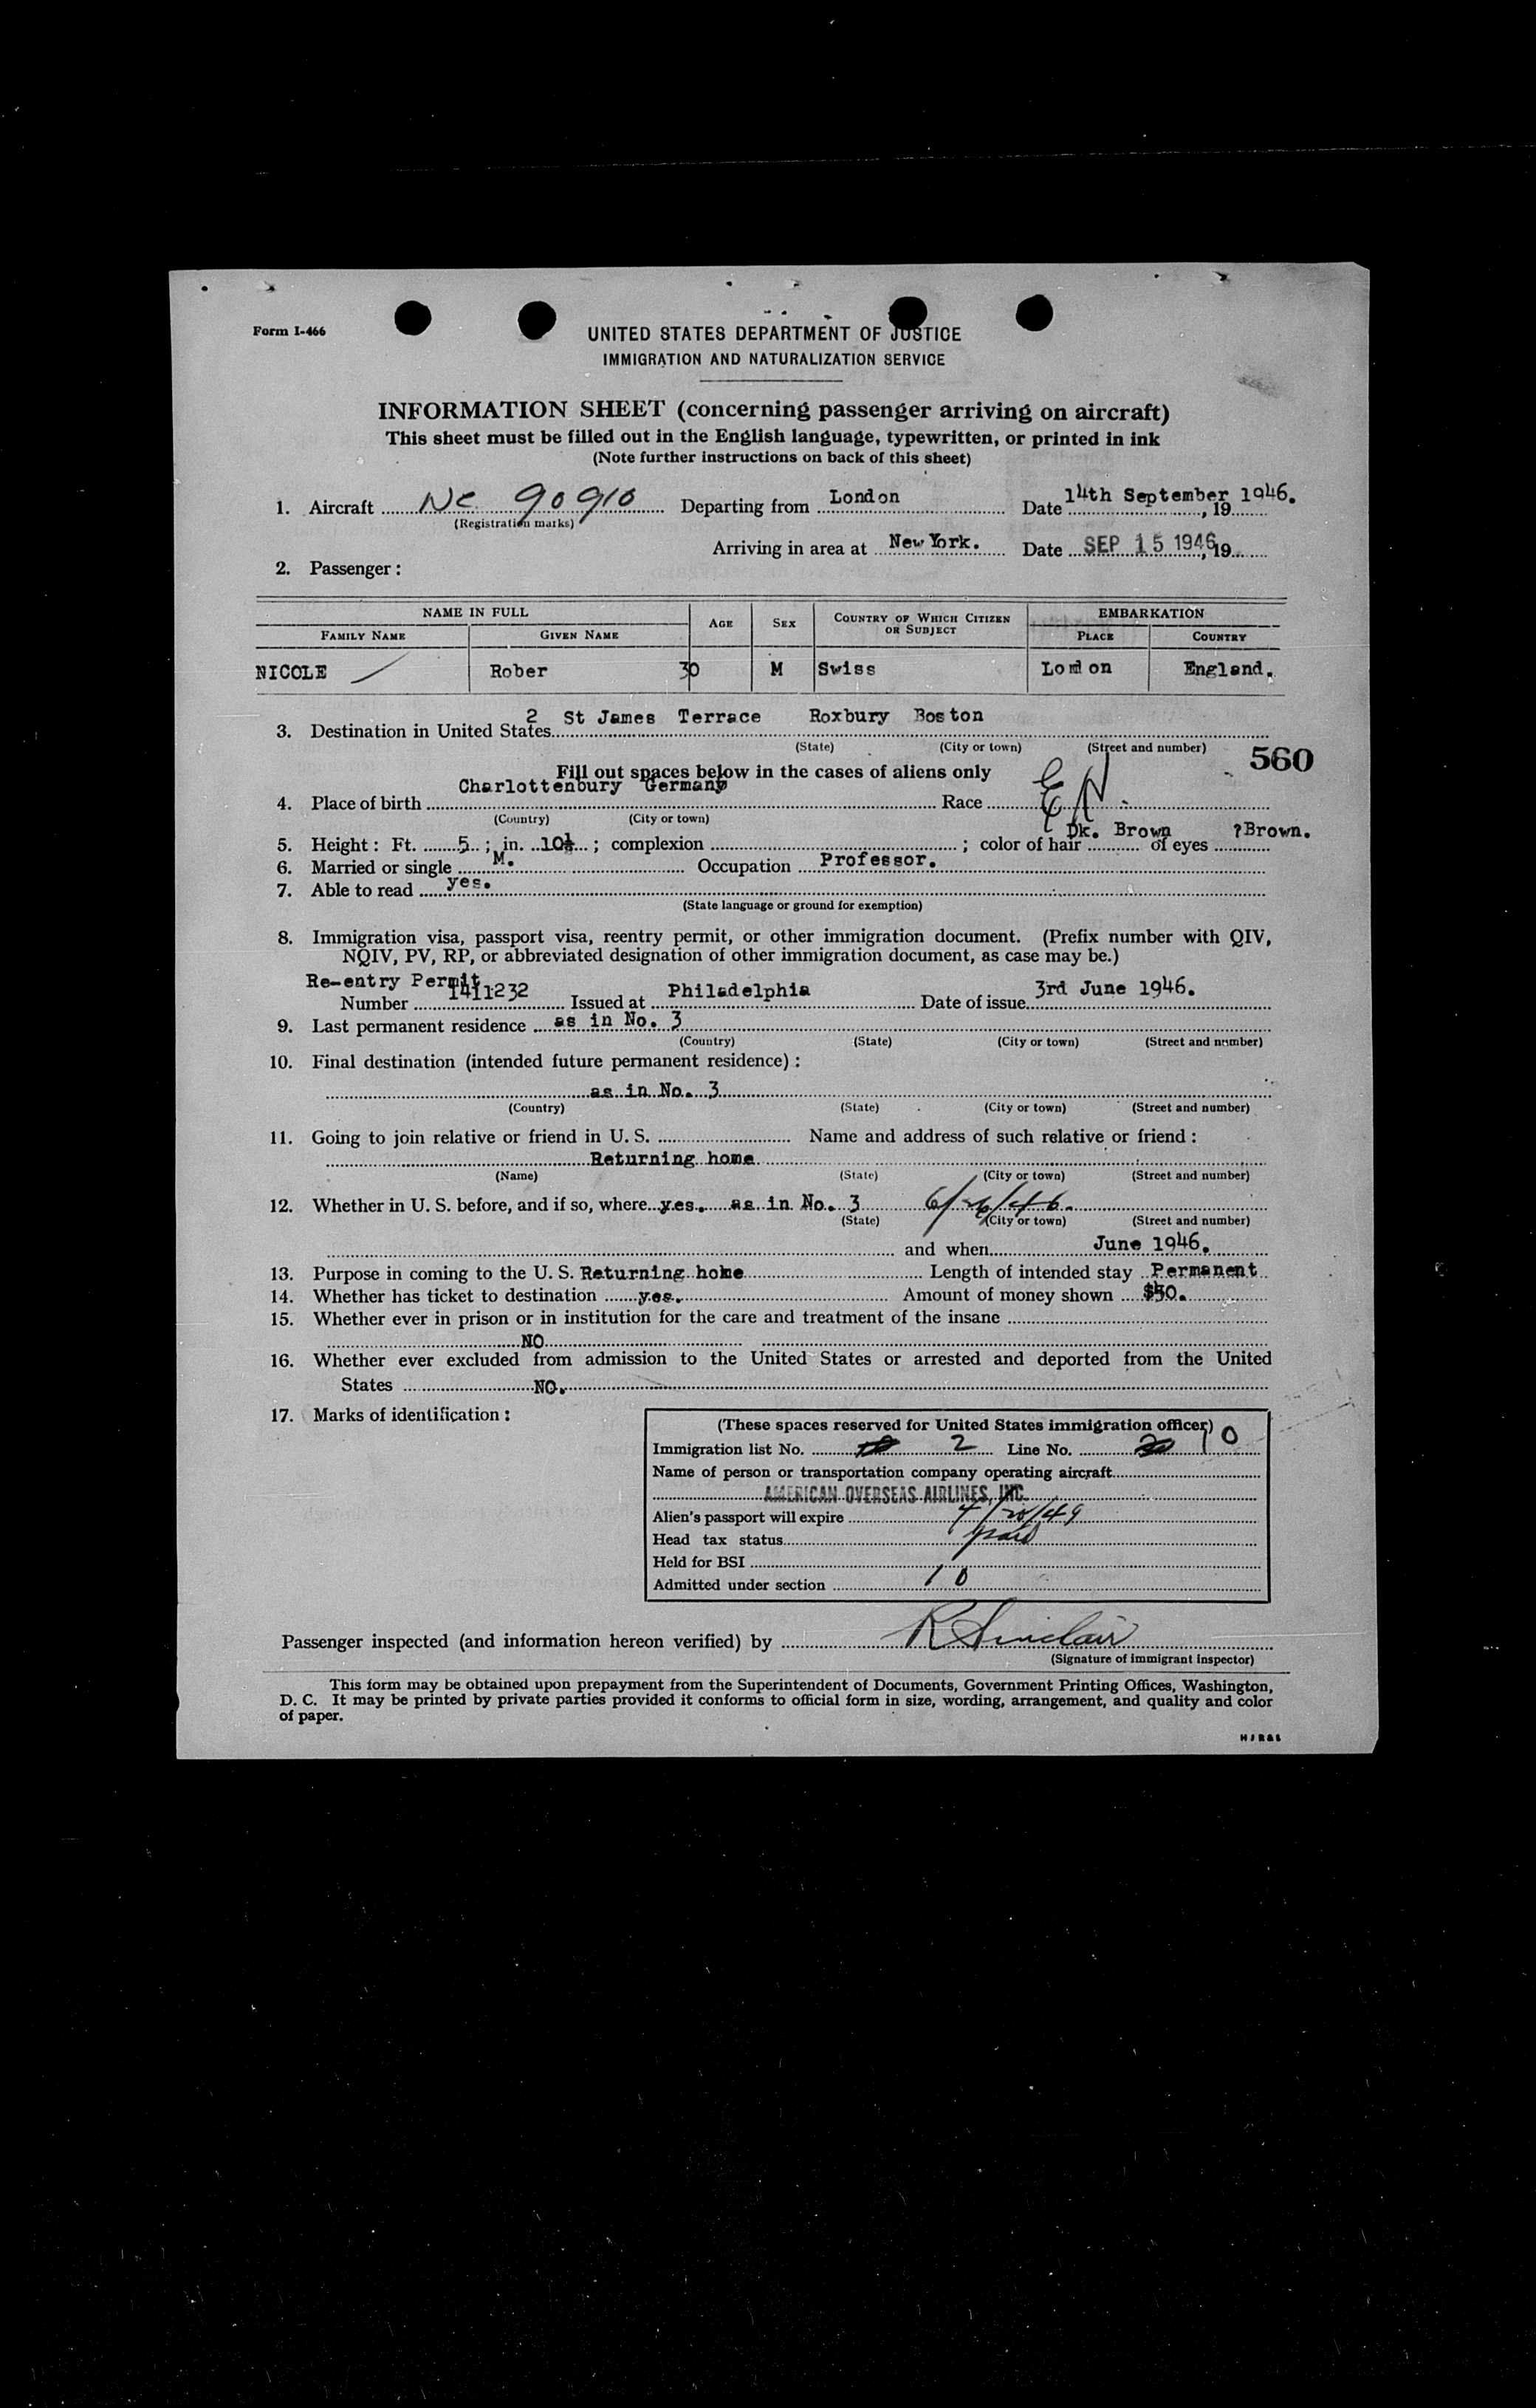 Form I-466
UNITED STATES DEPARTMENT OF JUSTICE
IMMIGRATION AND NATURALIZATION SERVICE
INFORMATION SHEET (concerning passenger arriving on aircraft)
This sheet must be filled out in the English language, typewritten, or printed in ink
(Note further instructions on back of this sheet)
1. Aircraft Nc 90910 Departing from London Date 14th September 1946. , 19
(Registration marks)
Arriving in area at New York. Date SEP 15 1946, 19
2. Passenger:
NAME IN FULL AGE SEX COUNTRY OF WHICH CITIZEN OR SUBJECT EMBARKATION
FAMILY NAME GIVEN NAME PLACE COUNTRY
NICOLE Rober 30 M Swiss London England.
2 St James Terrace Roxbury Boston
3. Destination in United States
(State) (City or town) (Street and number)
560
Fill out spaces below in the cases of aliens only
Charlottenbury Germany
4. Place of birth Race
(Country) (City or town)
5. Height: Ft. 5; in. 10½; complexion ; color of hair Dk. Brown of eyes ?Brown.
6. Married or single M. Occupation Professor.
7. Able to read yes.
(State language or ground for exemption)
8. Immigration visa, passport visa, reentry permit, or other immigration document. (Prefix number with QIV,
NQIV, PV, RP, or abbreviated designation of other immigration document, as case may be.)
Re-entry Permit
Number 1411232 Issued at Philadelphia Date of issue 3rd June 1946.
9. Last permanent residence as in No. 3
(Country) (State) (City or town) (Street and number)
10. Final destination (intended future permanent residence):
as in No. 3
(Country) (State) (City or town) (Street and number)
11. Going to join relative or friend in U. S. Name and address of such relative or friend:
Returning home
(Name) (State) (City or town) (Street and number)
12. Whether in U. S. before, and if so, where yes. as in No. 3
(State) (City or town) (Street and number)
and when June 1946.
13. Purpose in coming to the U. S. Returning home Length of intended stay Permanent
14. Whether has ticket to destination yes. Amount of money shown $50.
15. Whether ever in prison or in institution for the care and treatment of the insane
NO
16. Whether ever excluded from admission to the United States or arrested and deported from the United
States NO.
17. Marks of identification:
(These spaces reserved for United States immigration officer)
Immigration list No. 2 Line No. 10
Name of person or transportation company operating aircraft
AMERICAN OVERSEAS AIRLINES, INC.
Alien's passport will expire 4/20/49
Head tax status paid
Held for BSI
Admitted under section 10
Passenger inspected (and information hereon verified) by R Sinclair
(Signature of immigrant inspector)
This form may be obtained upon prepayment from the Superintendent of Documents, Government Printing Offices, Washington,
D. C. It may be printed by private parties provided it conforms to official form in size, wording, arrangement, and quality and color
of paper.